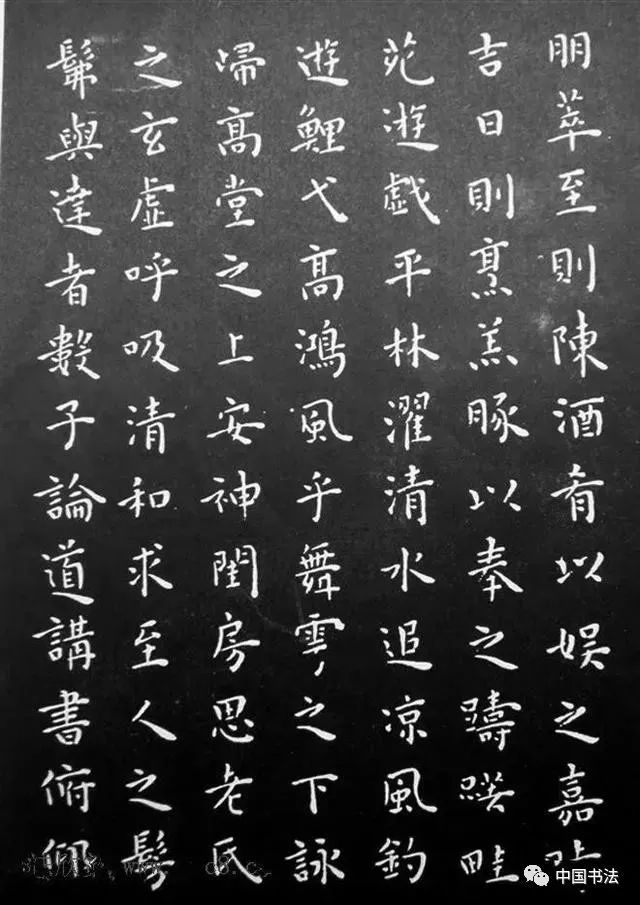 朋萃至則陳酒肴以娛之嘉
吉日則烹羔豚以奉之躊躇畦
苑遊戯平林濯清水追凉風釣
遊鯉弋高鴻風乎舞雩之下詠
歸高堂之上安神閨房思老氏
之玄虛呼吸清和求至人之髣
髴與達者數子論道講書俯仰
中国书法